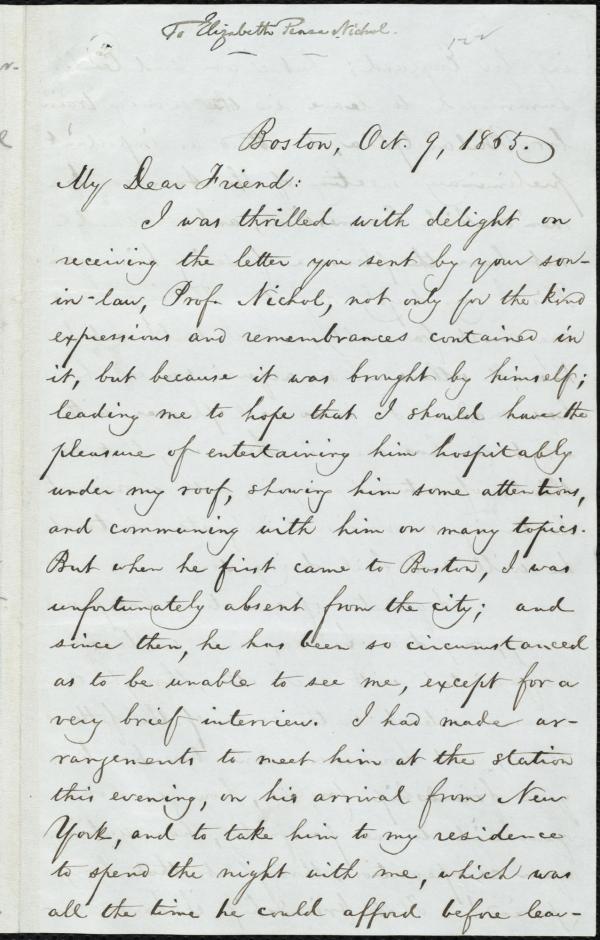 To Elizabeth Pease Nichol.
Boston, Oct. 9, 1865.
My Dear Friend:
I was thrilled with delight on
receiving the letter you sent by your son-
in-law, Prof. Nichol, not only for the kind
expressions and remembrances contained in
it, but because it was brought by himself;
leading me to hope that I should have the
pleasure of entertaining him hospitably
under my roof, showing him some attentions,
and communing with him on many topics.
But when he first came to Boston, I was
unfortunately absent from the city; and
since then, he has been so circumstanced
as to be unable to see me, except for a
very brief interview. I had made ar-
rangements to meet him at the station
this evening, on his arrival from New
York, and to take him to my residence
to spend the night with me, which was
all the time he could afford before leav-